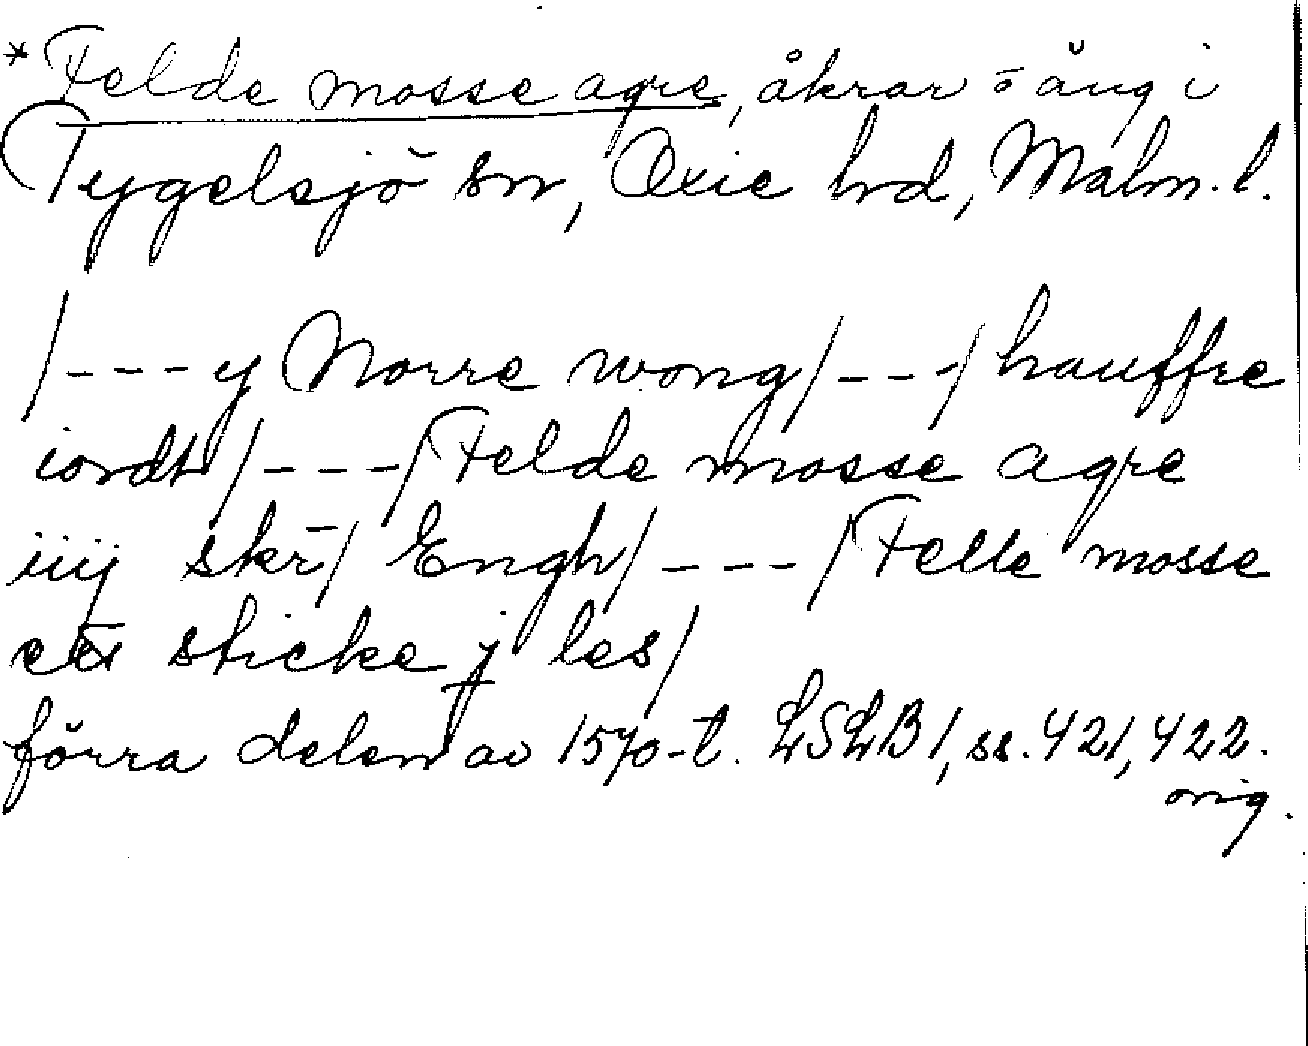 * Felde mosse agre, åkrar o äng i
Tygelsjö sn, Oxie hd, Malm. l.
/---y Norre wong/---/ hauffre
iordt/---/ Felde mosse agre
iiij skr̄/ Engh/---/ Felle mosse
sticke j les/
förra delen av 1570-t. LSLB 1, ss. 421, 422.
orig.